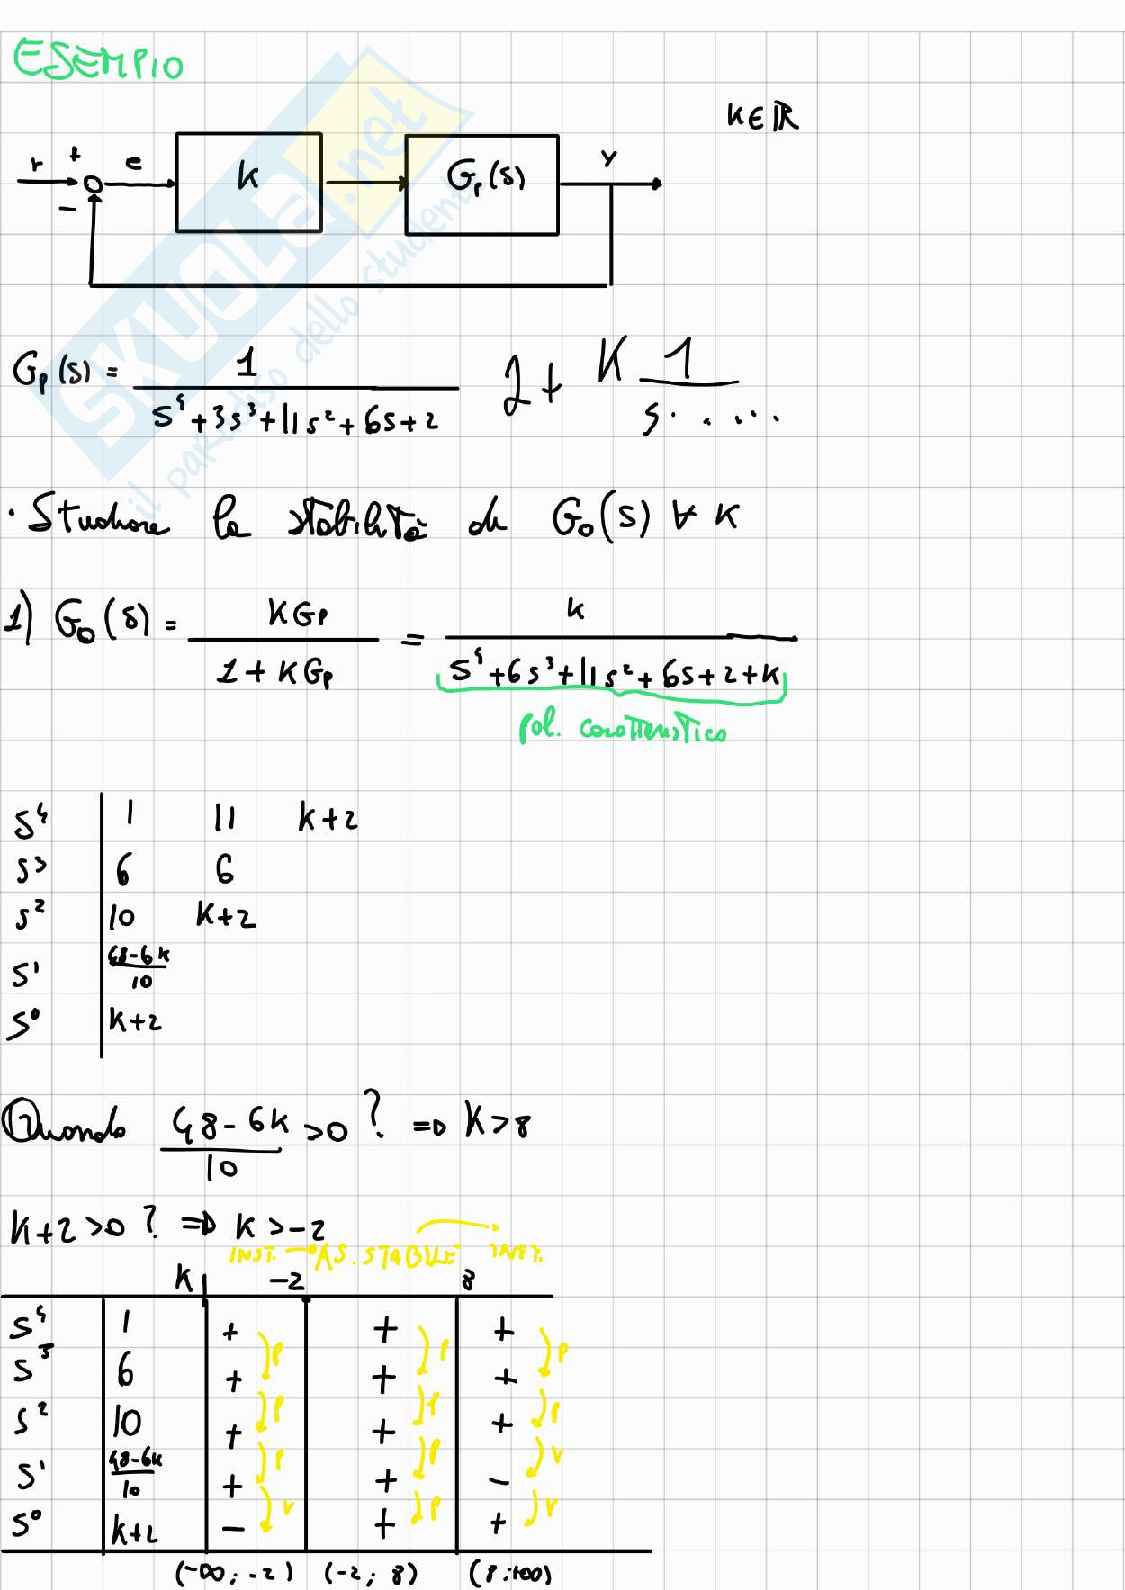 ESEMPIO
K∈ℝ
r + e k Gp(s) y
−
Gp(s) = 1 / (s⁴+3s³+11s²+6s+2) 1+ K 1 / s. . ...
SKUOLA.net
il paradiso dello studente
· Studiare la stabilità di G₀(s) ∀ K
1) G₀(s) = KGp / (1+KGp) = k / (s⁴+6s³+11s²+6s+2+k)
pol. caratteristico
s⁴ | 1 11 k+2
s³ | 6 6
s² | 10 k+2
s¹ | (48-6k)/10
s⁰ | k+2
Quando (48-6k)/10 >0 ? => K>8
k+2>0 ? => k>-2
INST. AS. STABILE INST.
K -2 8
s⁴ 1 + p + p + p
s³ 6 + p + p + p
s² 10 + p + p + v
s¹ (48-6k)/10 + v + p - v
s⁰ k+2 - + +
(-∞; -2) (-2; 8) (8; +∞)